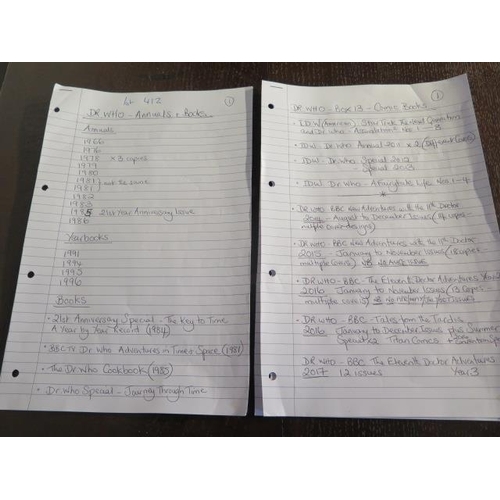 Lot 412
①
DR WHO - ANNUALS + BOOKS
Annuals
1966
1976
1978 x 3 copies
1979
1980
1981
1981 not the same
1982
1983
1985 21st Year Anniversary Issue
1986
Yearbooks
1991
1994
1995
1996
BOOKS
• 21st Anniversary Special - The Key to Time
A Year by Year Record (1984)
• BBC TV Dr Who Adventures in Time + Space (1981)
• The Dr Who Cookbook (1985)
• Dr Who Special - Journey Through Time
①
DR WHO - BOX 13 - Comic Books
• IDW (American) Star Trek The Next Generation
and Dr Who - Assimilation Nos 1 - 8
• IDW Dr Who Annual 2011 x 2 (Different Covers)
• IDW - Dr Who Special 2012
- Special 2013
• IDW Dr Who - A Fairytale Life Nos 1 - 4
• DR WHO - BBC New Adventures with the 11th Doctor
2014 - August to December Issues
multiple cover designs)
• DR WHO - BBC New Adventures with the 11th Doctor
2015 January to November Issues (18 copies
multiple covers) NB NO AUG ISSUE
• DR WHO - BBC The Eleventh Doctor Adventures Year 2
2016 January to November Issues (13 copies -
multiple covers)
• DR WHO - BBC - Tales from the Tardis
2016 January to December Issues plus Summer
Special x 2 Titan Comics
DR WHO - BBC The Eleventh Doctor Adventures
2017 12 issues Year 3